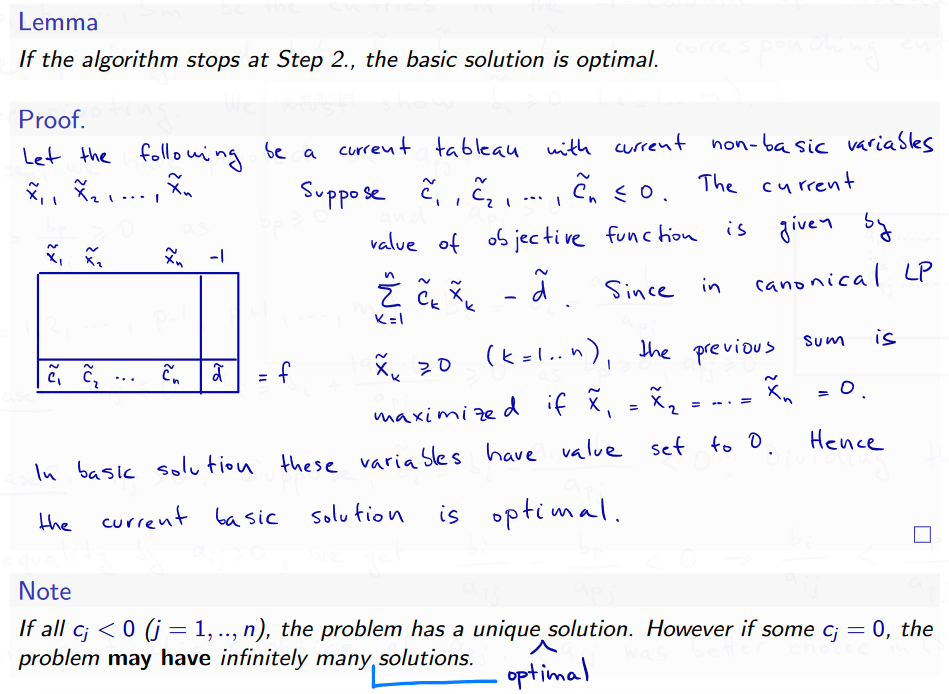 Lemma
If the algorithm stops at Step 2., the basic solution is optimal.
Proof.
Let the following be a current tableau with current non-basic variables
x̃₁, x̃₂, ..., x̃ₙ Suppose c̃₁, c̃₂, ..., c̃ₙ ≤ 0. The current
value of objective function is given by
x̃₁ x̃₂ x̃ₙ -1
∑ₖ₌₁ⁿ c̃ₖ x̃ₖ - d̃. Since in canonical LP
x̃ₖ ≥ 0 (k=1..n), the previous sum is
c̃₁ c̃₂ ... c̃ₙ d̃ = f
maximized if x̃₁ = x̃₂ = ... = x̃ₙ = 0.
In basic solution these variables have value set to 0. Hence
the current basic solution is optimal.
□
Note
If all cⱼ < 0 (j = 1, .., n), the problem has a unique solution. However if some cⱼ = 0, the
problem may have infinitely many solutions.
optimal